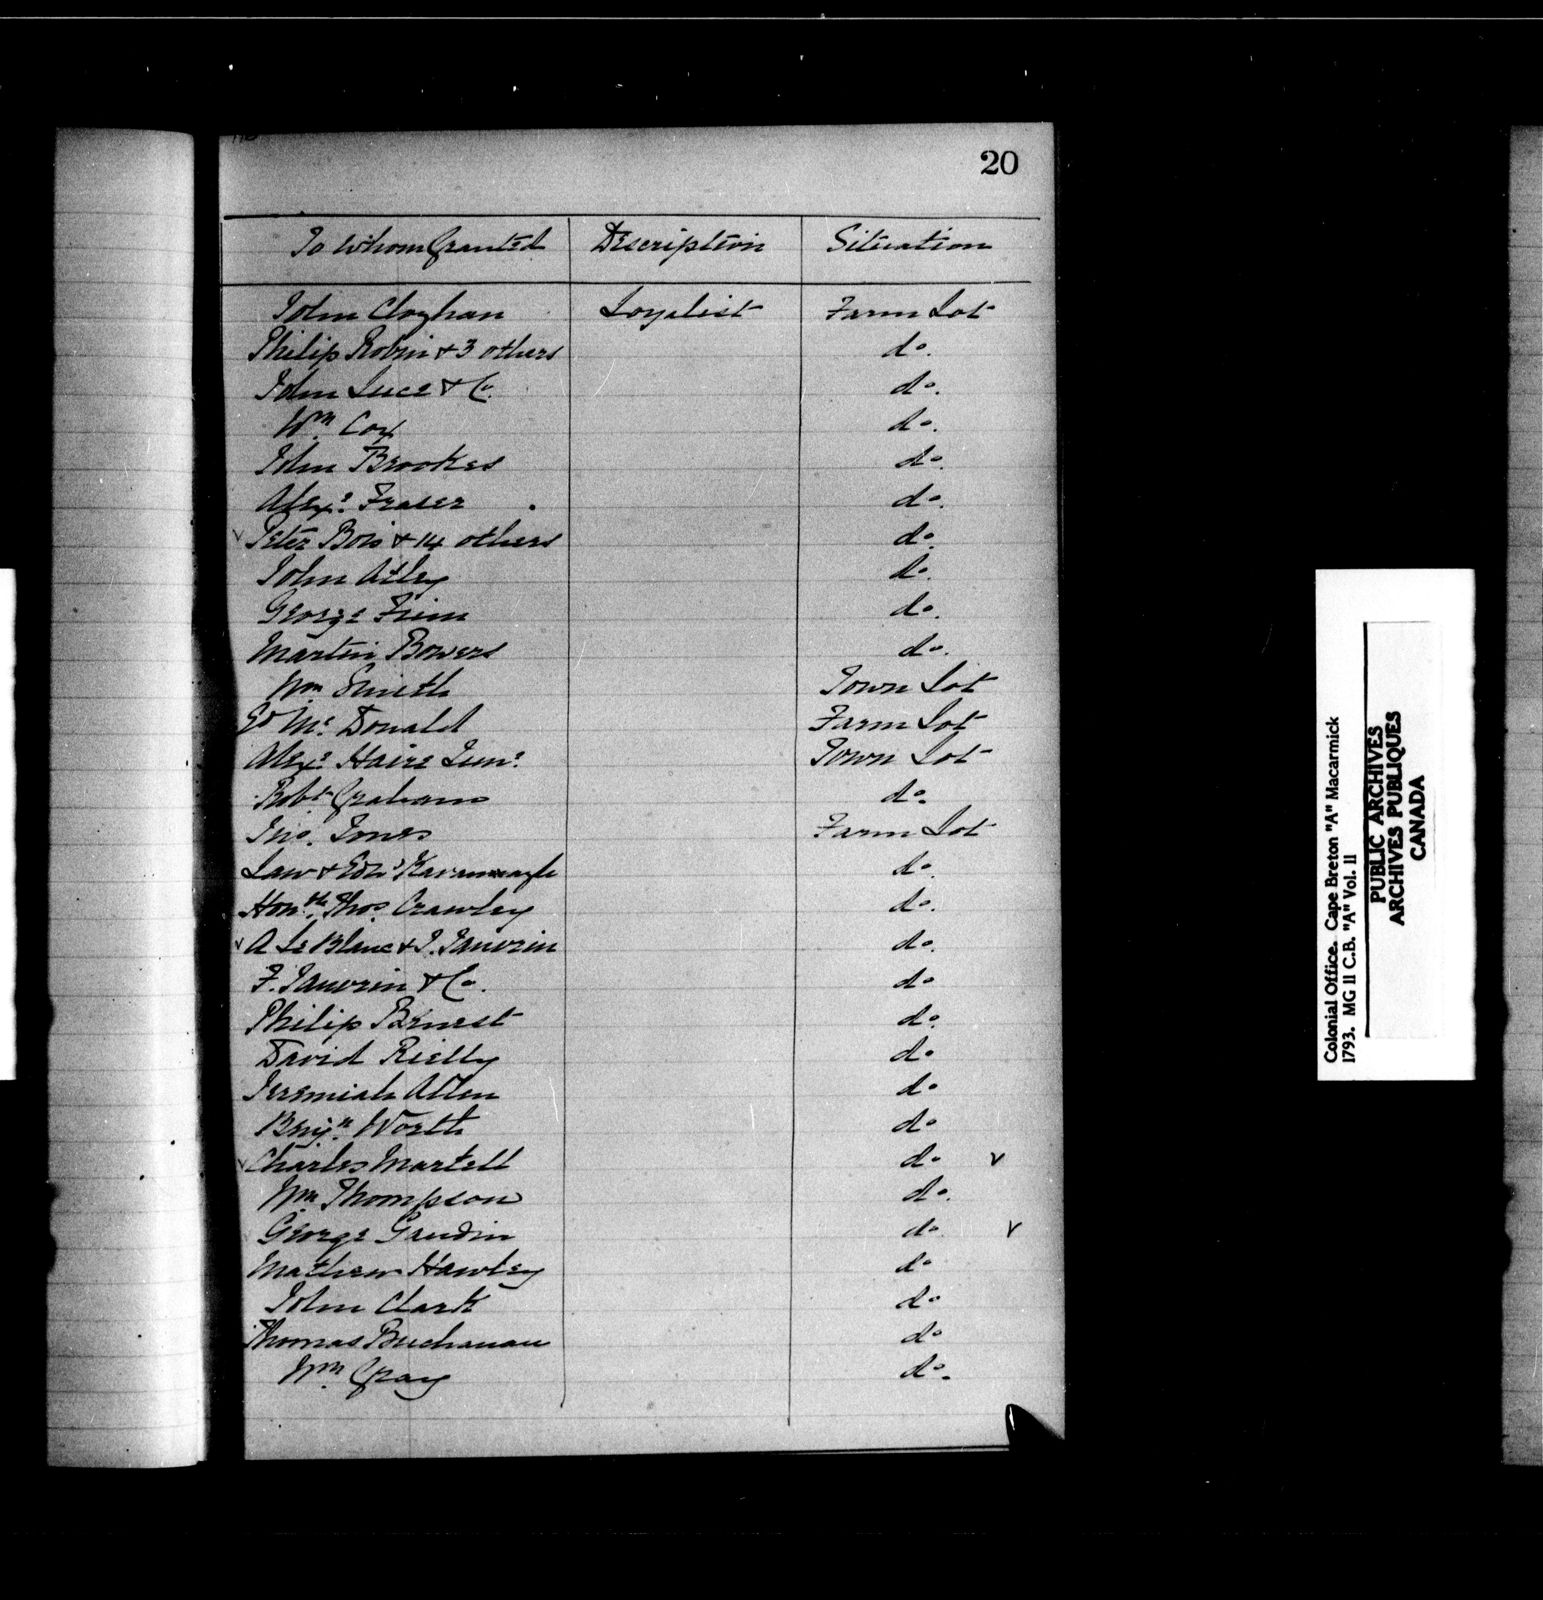 20
To Whom Granted Description Situation
John Cloghan Loyalist Farm Lot
Philip Robin + 3 others do.
John Luce + Co. do.
Wm. Cox do.
John Brookes do.
Alexr. Fraser do.
v Peter Bois + 14 others do.
John Atley do.
George Frim do.
Martin Bowers do.
Wm Smith Town Lot
Mc. Donald Farm Lot
Alexr. Haire Junr. Town Lot
Robt. Graham do.
Jno. Jones Farm Lot
Law + Edwd Kavannagh do.
Honble. Thos. Crawley do.
v A Le Blanc + J. Janvrin do.
F. Janvrin + Co. do
Philip Ernest do.
David Rielly do
Jeremiah Allen do
Benjn. Worth do
v Charles Martell do v
Wm Thompson do.
George Gaudin do. v
Mathew Hawley do
John Clark do
Thomas Buchanan do
Wm. Gray do.
Colonial Office. Cape Breton "A" Macarmick
1793. MG 11 C.B. "A" Vol. 11
PUBLIC ARCHIVES
ARCHIVES PUBLIQUES
CANADA